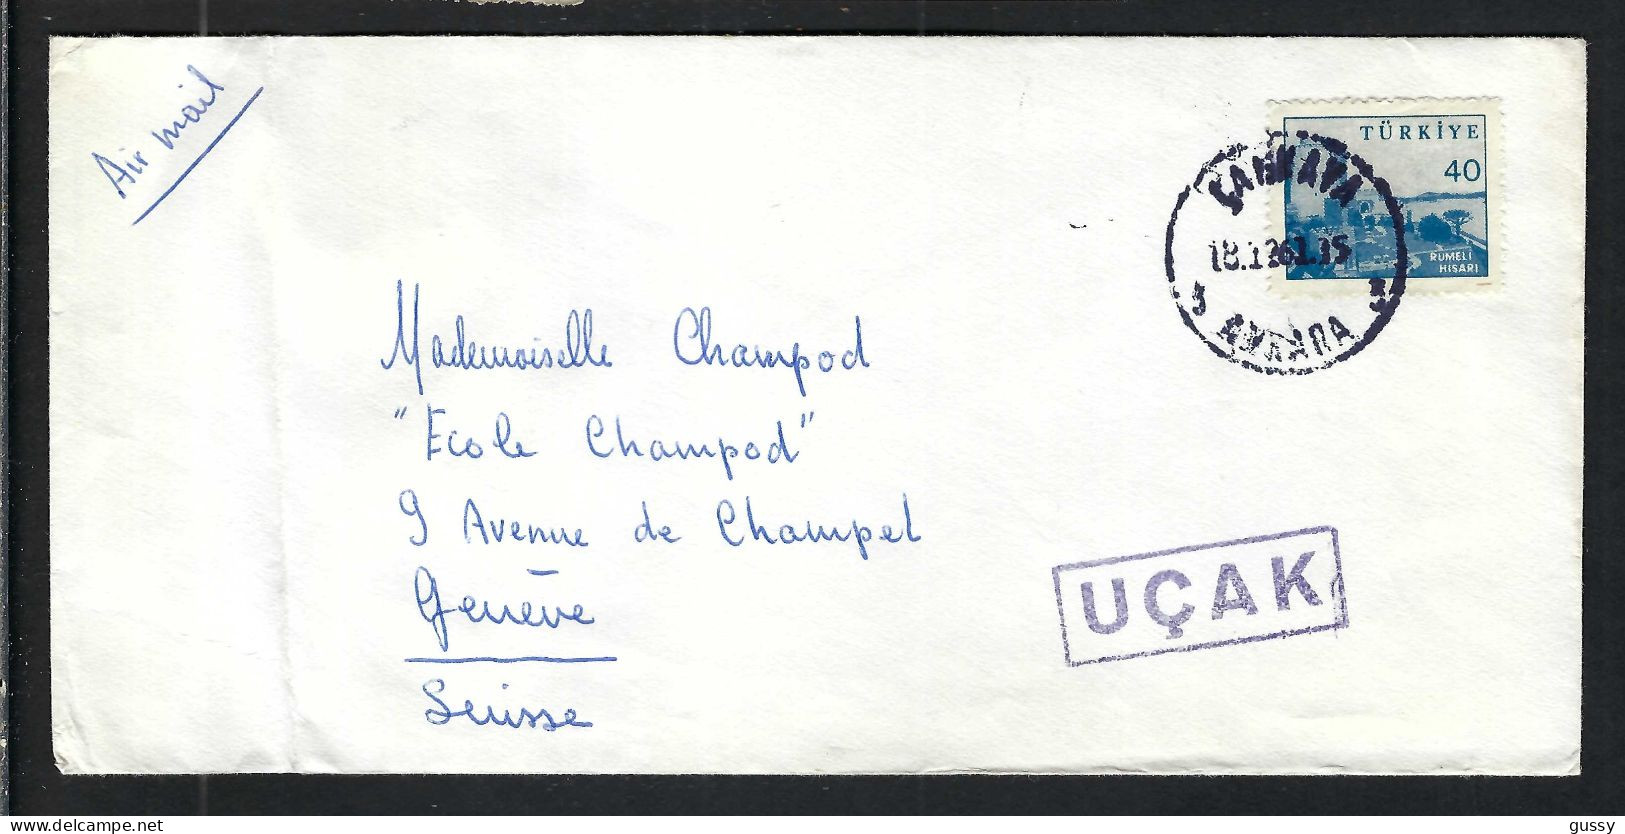 Air mail
TÜRKİYE
40
RUMELİ
HİSARI
ÇANKAYA
3 ANKARA 3
Mademoiselle Champod
"Ecole Champod"
9 Avenue de Champel
Genève
Suisse
UÇAK
www.delcampe.net
gussy